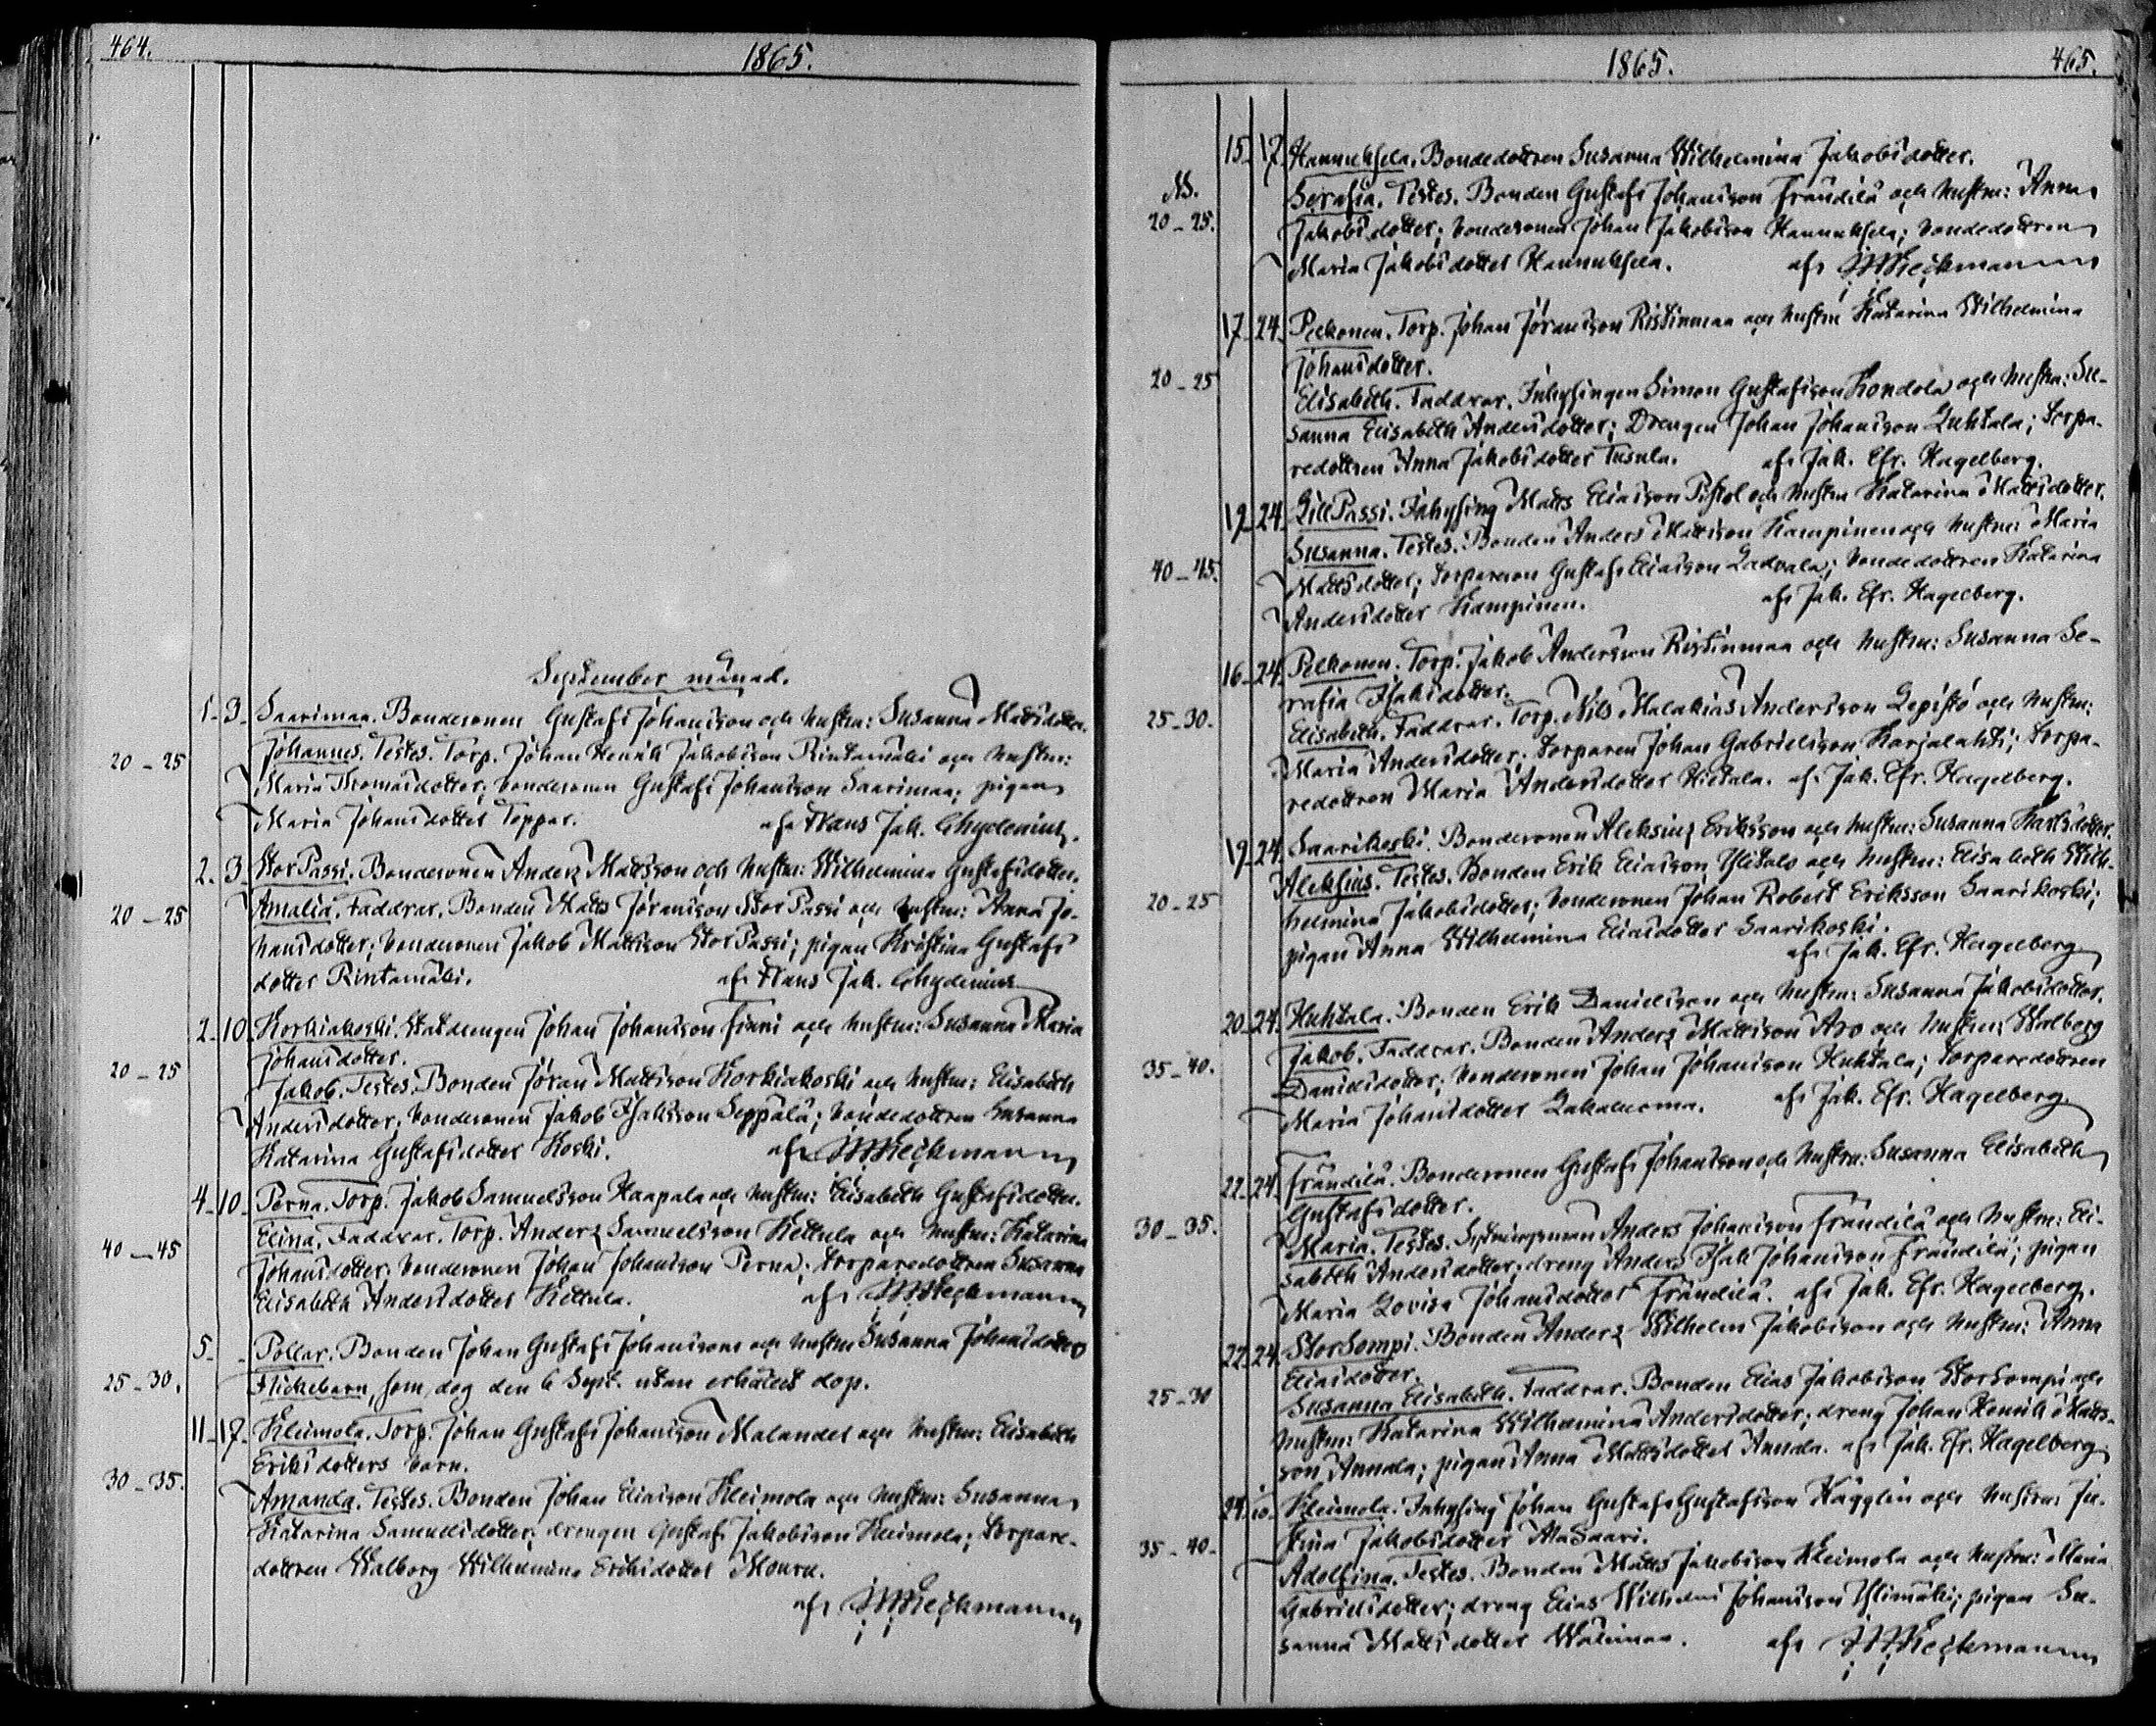 464.
1865.
September månad.
1. 3. Saarimaa. Bondesonen Gustaf Johansson och hustru: Susanna Mattsdotter.
20-25 Johannes. Testes. Torp. Johan Henrik Jakobsson Rintamäki och hustru:
Maria Thomasdotter; bondesonen Gustaf Johansson Saarimaa; pigan
Maria Johansdotter Toppar. af Frans Jak. Chydenius.
2. 3. StorPassi. Bondesonen Anders Mattsson och hustru: Wilhelmina Gustafsdotter.
20-25 Amalia. Faddrar. Bonden Matts Jöransson StorPassi och hustru: Anna Jo-
hansdotter; bondesonen Jakob Mattsson StorPassi; pigan Kristina Gustafs
dotter Rintamäki. af Frans Jak. Chydenius
2. 10. Korkiakoski. Statdrengen Johan Johansson Finni och hustru: Susanna Maria
Johansdotter.
20-25 Jakob. Testes. Bonden Jöran Mattsson Korkiakoski och hustru: Elisabeth
Andersdotter; bondesonen Jakob Isaksson Seppälä; bondedottren Susanna
Katarina Gustafsdotter Koski. af
4. 10. Perna. Torp. Jakob Samuelsson Haapala och hustru: Elisabeth Gustafsdotter.
Elina. Faddrar. Torp. Anders Samuelsson Kettula och hustru: Katarina
40-45 Johansdotter; bondesonen Johan Johansson Perna; torparedottren Susanna
Elisabeth Andersdotter Kettula. af
5. - Pollar. Bonden Johan Gustaf Johansson och hustru Susanna Johansdotter
25-30. Flickebarn, som dog den 6 Sept. utan erhållet dop.
11. 17. Kleimola. Torp. Johan Gustaf Johansson Malander och hustru: Elisabeth
Eriksdotters barn.
30-35. Amanda. Testes. Bonden Johan Eliasson Kleimola och hustru: Susanna
Katarina Samuelsdotter; drengen Gustaf Jakobsson Kleimola; torpare-
dottren Walborg Wilhelmina Eriksdotter
af
1865.
465.
15. 17. Hannuksela. Bondedottren Susanna Wilhelmina Jakobsdotter.
Serafia. Testes. Bonden Gustaf Johansson Frändilä och hustru: Anna
20-25. Jakobsdotter; bondesonen Johan Jakobsson Hannuksela; bondedottren
Maria Jakobsdotter Hannuksela. af
17. 24. Pelkonen. Torp. Johan Jöransson Ristinmaa och hustru Katarina Wilhelmina
Johansdotter.
20-25 Elisabeth. Faddrar. Inhysingen Simon Gustafsson Kondola och hustru: Su-
sanna Elisabeth Andersdotter; Drengen Johan Johansson Luhtala; torpa-
redottren Anna Jakobsdotter Tusula. af Jak. Efr. Hagelberg.
19. 24. LillPassi. Inhysing Matts Eliasson Pistol och hustru Katarina Mattsdotter.
Susanna. Testes. Bonden Anders Mattsson Kampinen och hustru: Maria
40-45. Mattsdotter; torpareson Gustaf Eliasson Ladvala; bondedottren Katarina
Andersdotter Kampinen. af Jak. Efr. Hagelberg.
16. 24. Pelkonen. Torp. Jakob Andersson Ristinmaa och hustru: Susanna Se-
rafia Isaksdotter.
25-30. Elisabeth. Faddrar. Torp. Nils Malakias Andersson Lepistö och hustru:
Maria Andersdotter; torparen Johan Gabrielsson Karjalahti; torpa-
redottren Maria Andersdotter Hietala. af Jak. Efr. Hagelberg.
19. 24. Saarikoski. Bondesonen Aleksius Eriksson och hustru: Susanna Karlsdotter.
Aleksius. Testes. Bonden Erik Eliasson Ylitalo och hustru: Elisabeth Wil-
20-25 helmina Jakobsdotter; bondesonen Johan Robert Eriksson Saarikoski;
pigan Anna Wilhelmina Eliasdotter Saarikoski.
af Jak. Efr. Hagelberg
20. 24. Huhtala. Bonden Erik Danielsson och hustru: Susanna Jakobsdotter.
Jakob. Faddrar. Bonden Anders Mattsson Aro och hustru: Walborg
35-40. Danielsdotter; bondesonen Johan Johansson Huhtala; torparedottren
Maria Johansdotter af Jak. Efr. Hagelberg
22. 24. Frändilä. Bondesonen Gustaf Johansson och hustru: Susanna Elisabeth
Gustafsdotter.
30-35. Maria. Testes. Anders Johansson Frändilä och hustru: Eli-
sabeth Andersdotter; dreng Anders Isak Johansson Frändilä; pigan
Maria Lovisa Johansdotter Frändilä. af Jak. Efr. Hagelberg.
22. 24. StorSompi. Bonden Anders Wilhelm Jakobsson och hustru: Anna
Eliasdotter.
25-30 Susanna Elisabeth. Faddrar. Bonden Elias Jakobsson StorSompi och
hustru: Katarina Wilhelmina Andersdotter; dreng Johan Henrik Matts-
son Annala; pigan Anna Mattsdotter Annala. af Jak. Efr. Hagelberg
24. Kleimola. Inhysing Johan Gustaf Gustafsson Hägglin och hustru: Ju-
stina Jakobsdotter AlaSaari.
35-40. Adolfina. Testes. Bonden Matts Jakobsson Kleimola och hustru: Maria
Gabrielsdotter; dreng Elias Wilhelm Johansson Ylimäki; pigan Su-
sanna Mattsdotter Wälimaa. af